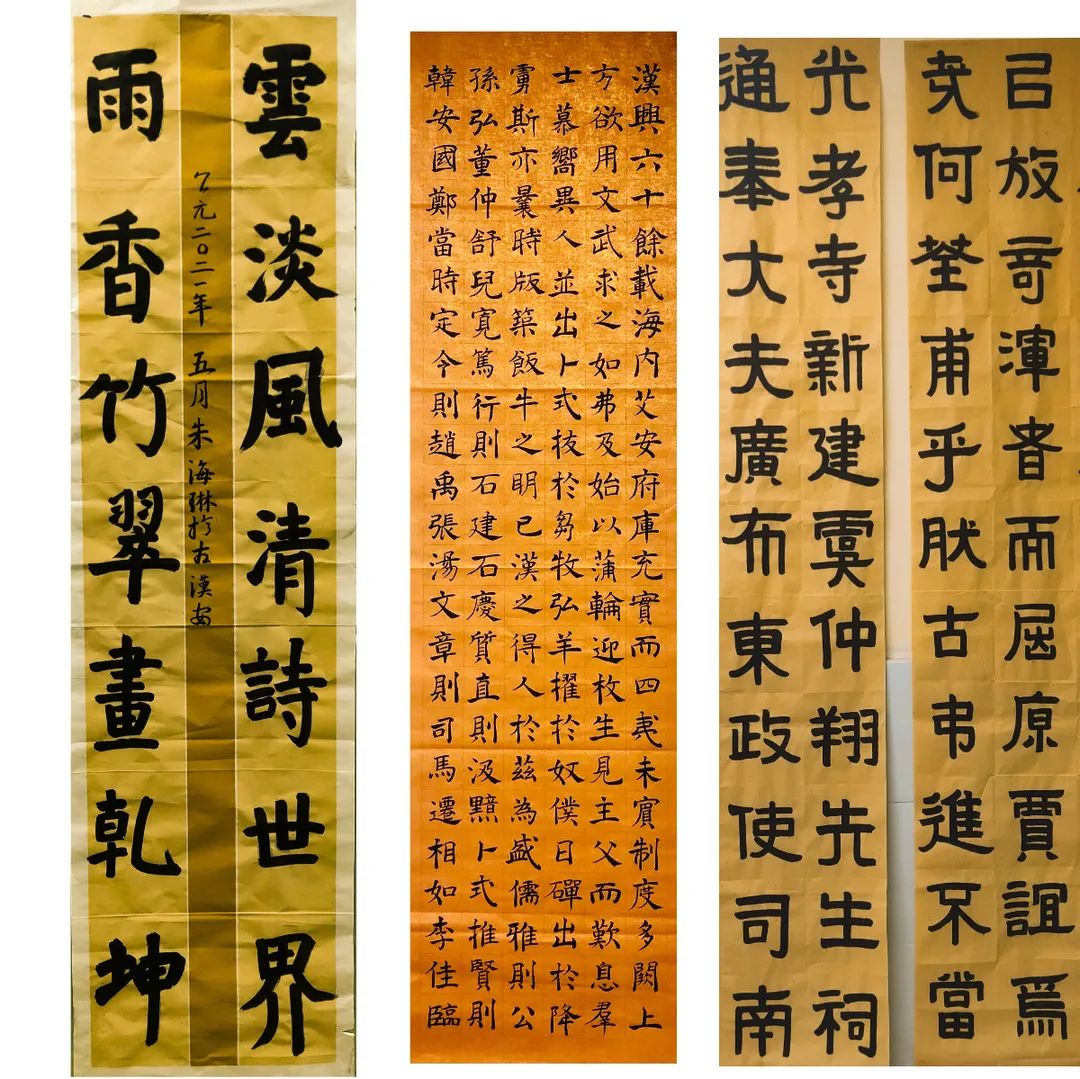 雲淡風清詩世界
雨香竹翠畫乾坤
公元二〇二一年 五月朱海琳於古漢安
漢興六十餘載海内艾安府庫充實而四夷未賓制度多闕上
方欲用文武求之如弗及始以蒲輪迎枚生見主父而歎息羣
士慕嚮異人並出卜式拔於芻牧弘羊擢於奴僕日磾出於降
虜斯亦曩時版築飯牛之明已漢之得人於茲為盛儒雅則公
孫弘董仲舒兒寬篤行則石建石慶質直則汲黯卜式推賢則
韓安國鄭當時定令則趙禹張湯文章則司馬遷相如李佳臨
放奇渾者而屈原賈誼焉
何荃甫乎肰古弔進不當
光孝寺新建虞仲翔先生祠
通奉大夫廣布東政使司南